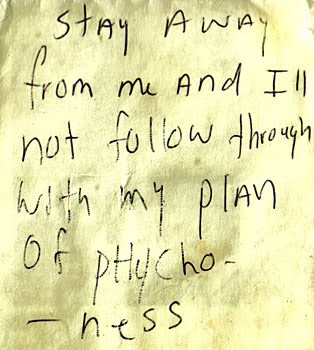 STAY AWAY
from me AND I'll
not follow through
with my plAN
Of pHycho-
- ness